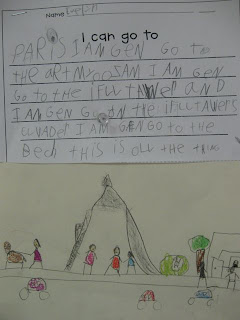 Name
I can go to
PARIS I AM GEN GO to
tHE ARt MYOOSAM I AM GEN
GO tO tHE IFULL tAWeR AND
I AM GEN GO ON tHE IFULL tAWERS
ULVADER I AM GEN GO tO tHE
BeCH tHIS IS OLL tHE tHING